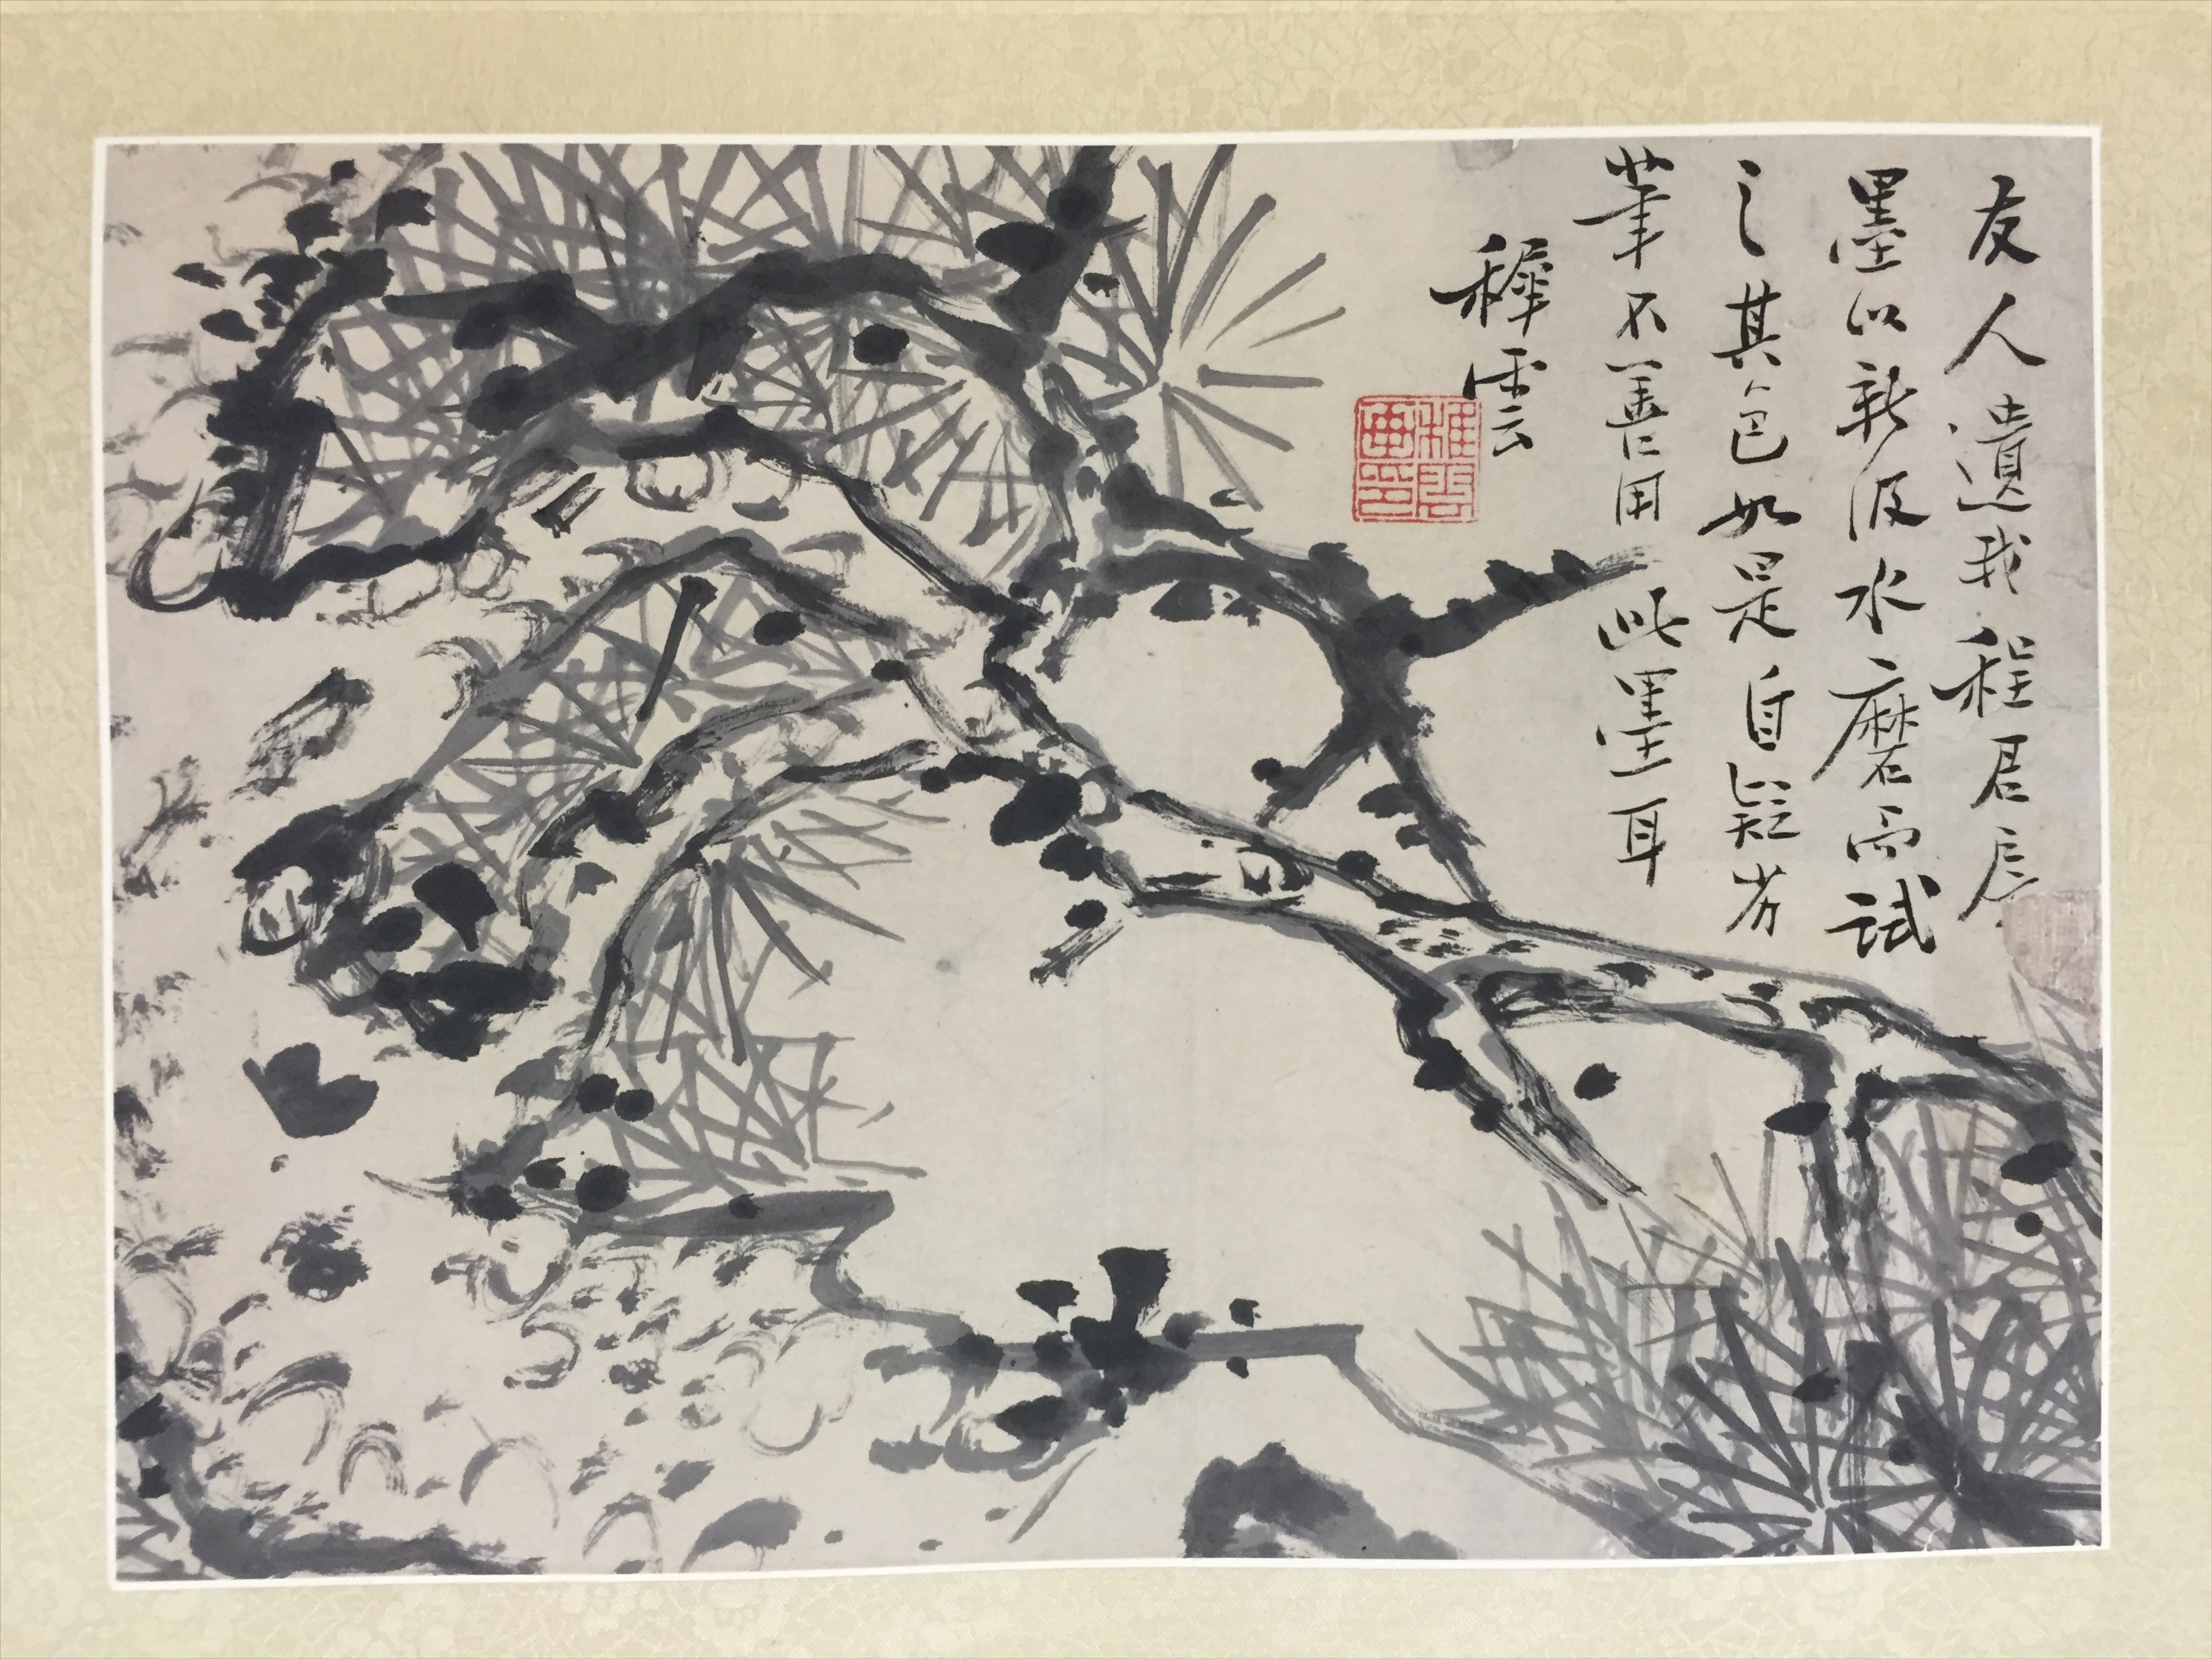 友人遺我程君房
墨以新汲水磨而試
之其色如是自疑劣
筆不善用此墨耳
穉雲